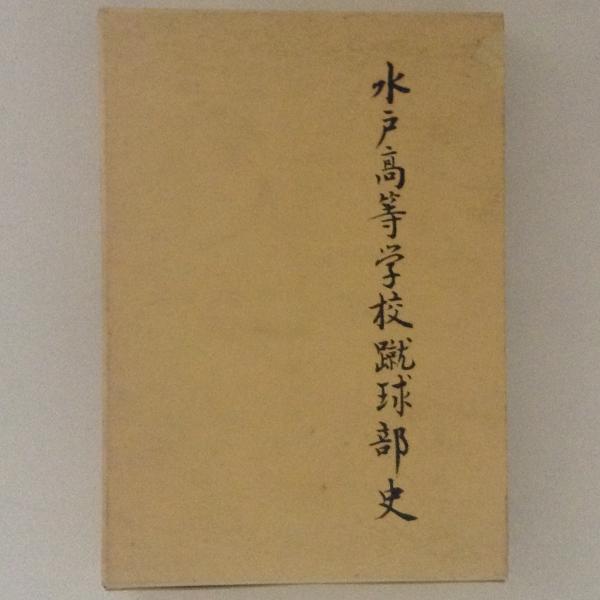 水戸高等学校蹴球部史